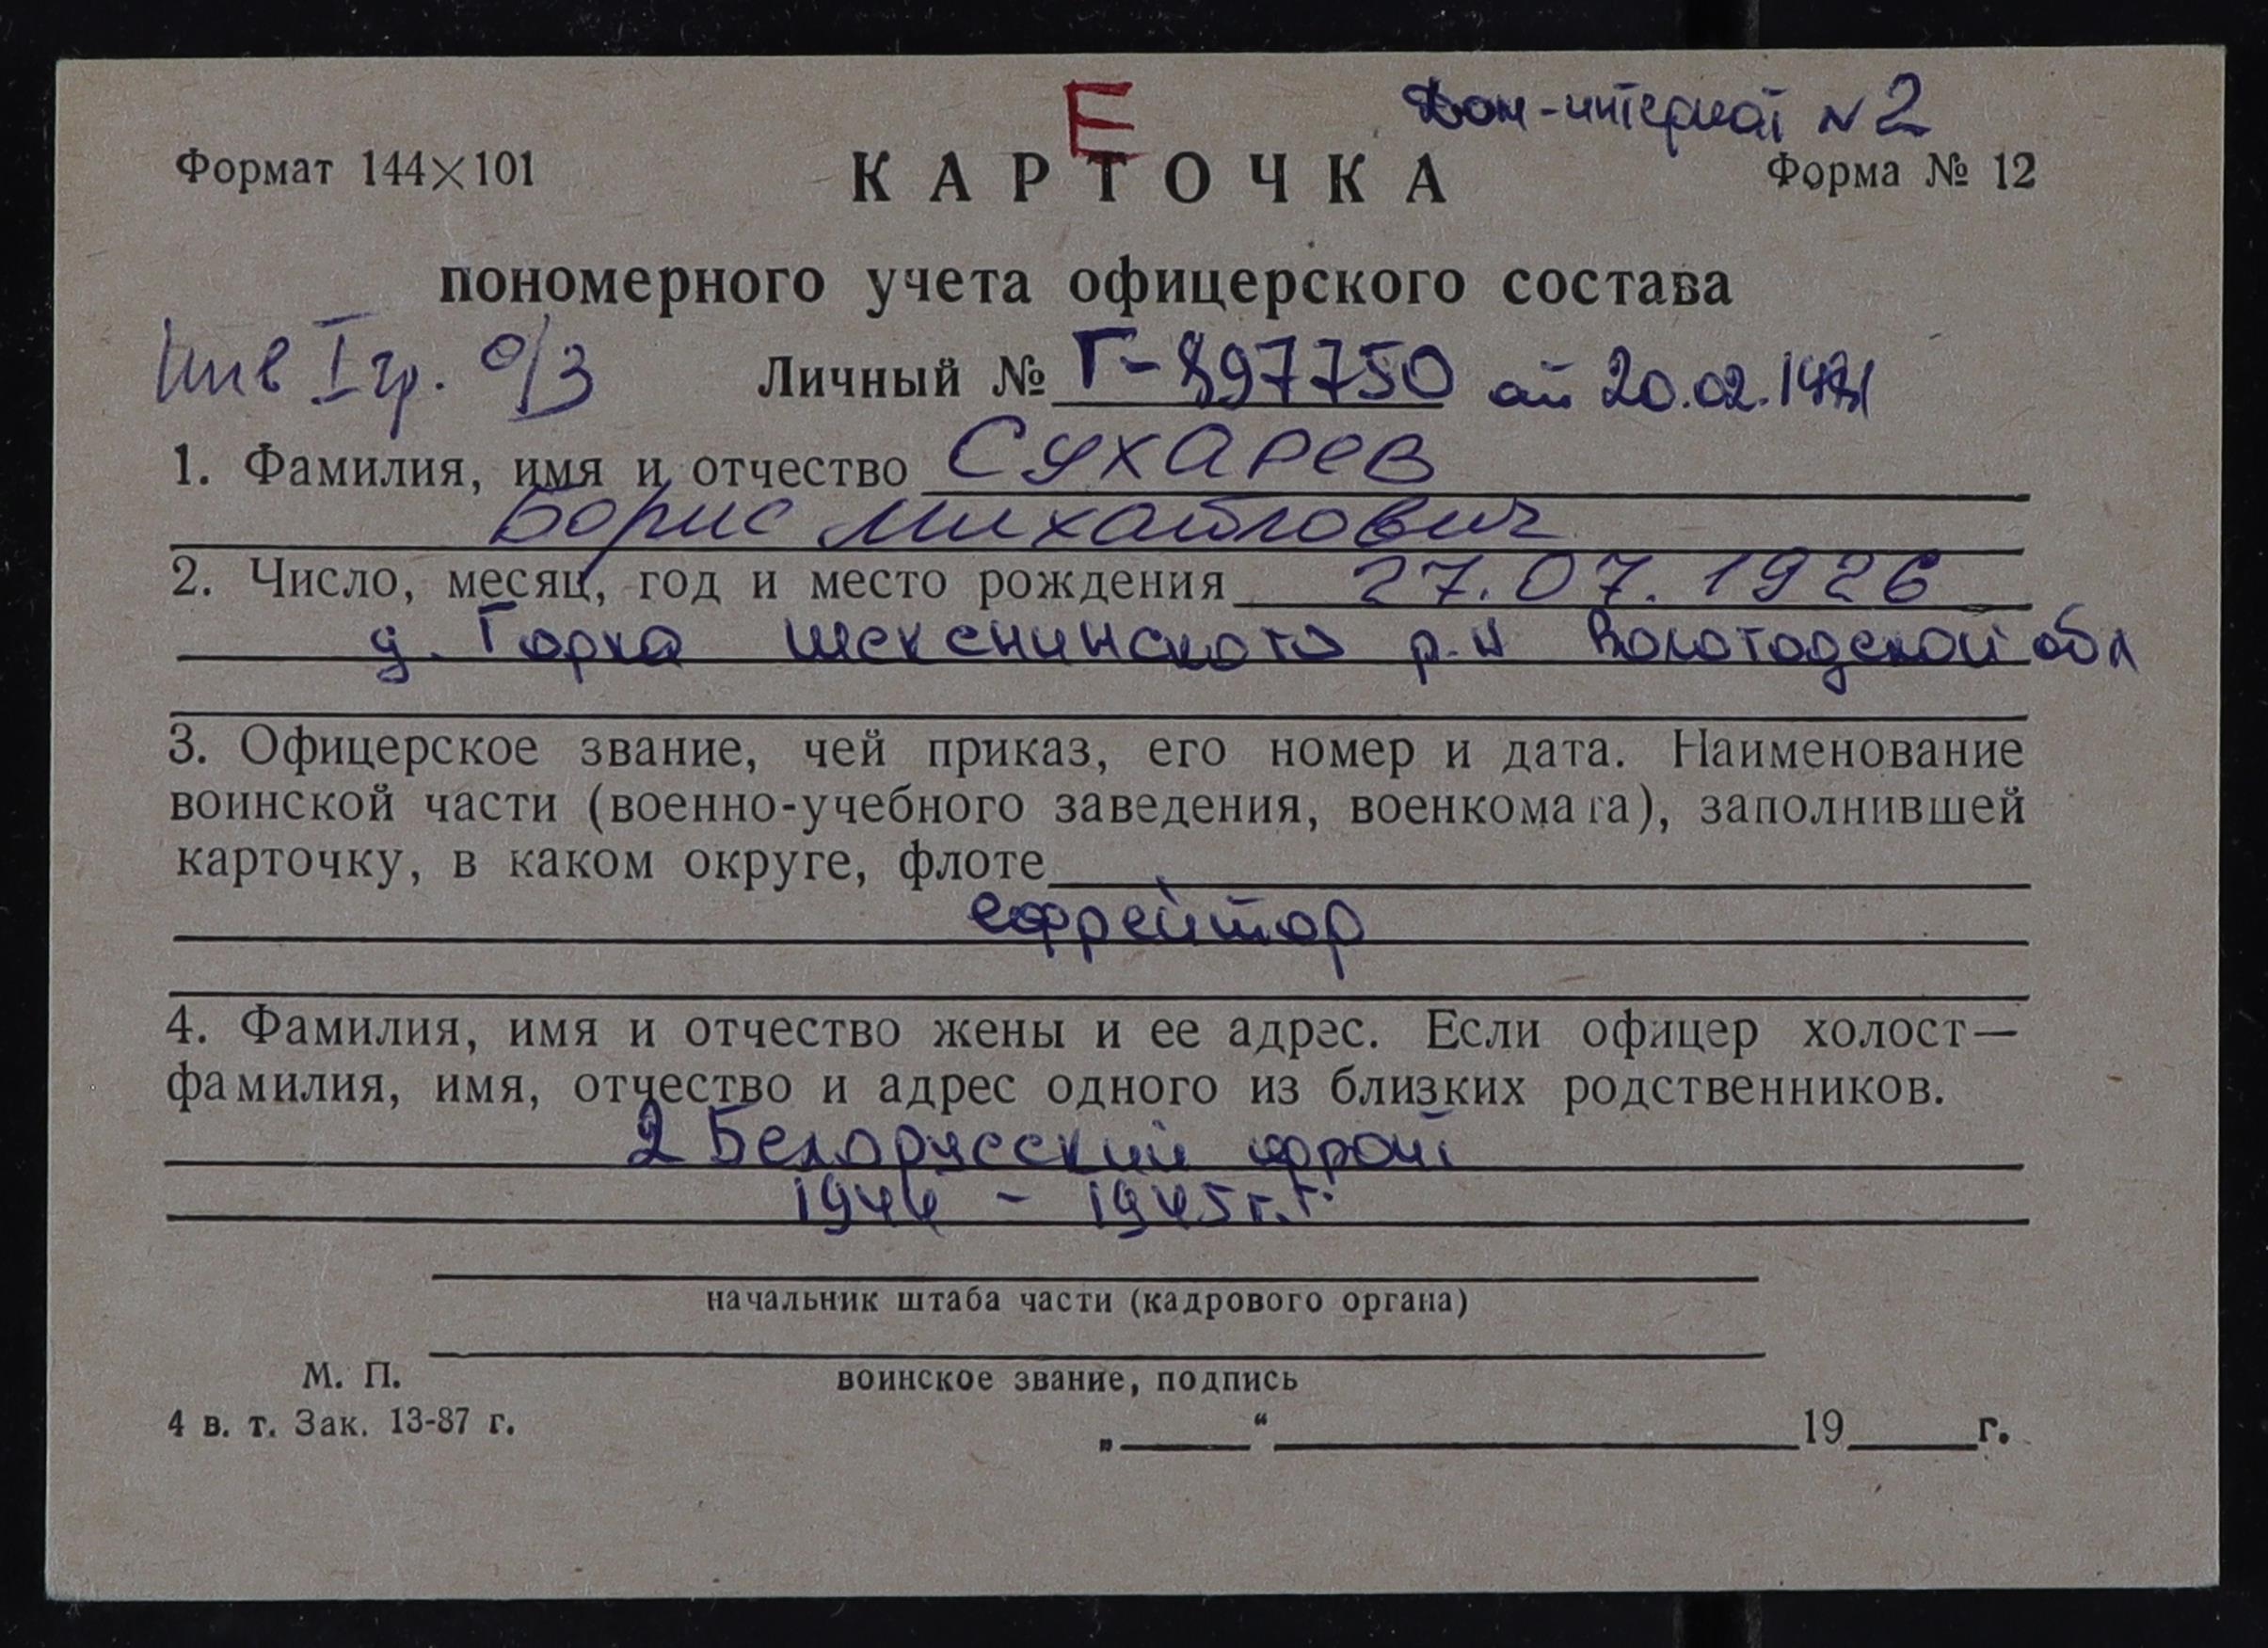 Е
Дом-интернат N 2
Формат 144×101
КАРТОЧКА
Форма № 12
пономерного учета офицерского состава
Инв I гр. о/з
Личный № Г-897750 от 20.02.1981
1. Фамилия, имя и отчество Сухарев
Борис Михайлович
2. Число, месяц, год и место рождения 27.07.1926
д. Горка Шекснинского р-н Вологодской обл
3. Офицерское звание, чей приказ, его номер и дата. Наименование
воинской части (военно-учебного заведения, военкомата), заполнившей
карточку, в каком округе, флоте
ефрейтор
4. Фамилия, имя и отчество жены и ее адрес. Если офицер холост—
фамилия, имя, отчество и адрес одного из близких родственников.
2 Белорусский фронт
1944 - 1945 г.г.
начальник штаба части (кадрового органа)
М. П.
воинское звание, подпись
4 в. т. Зак. 13-87 г.
„ “ 19 г.